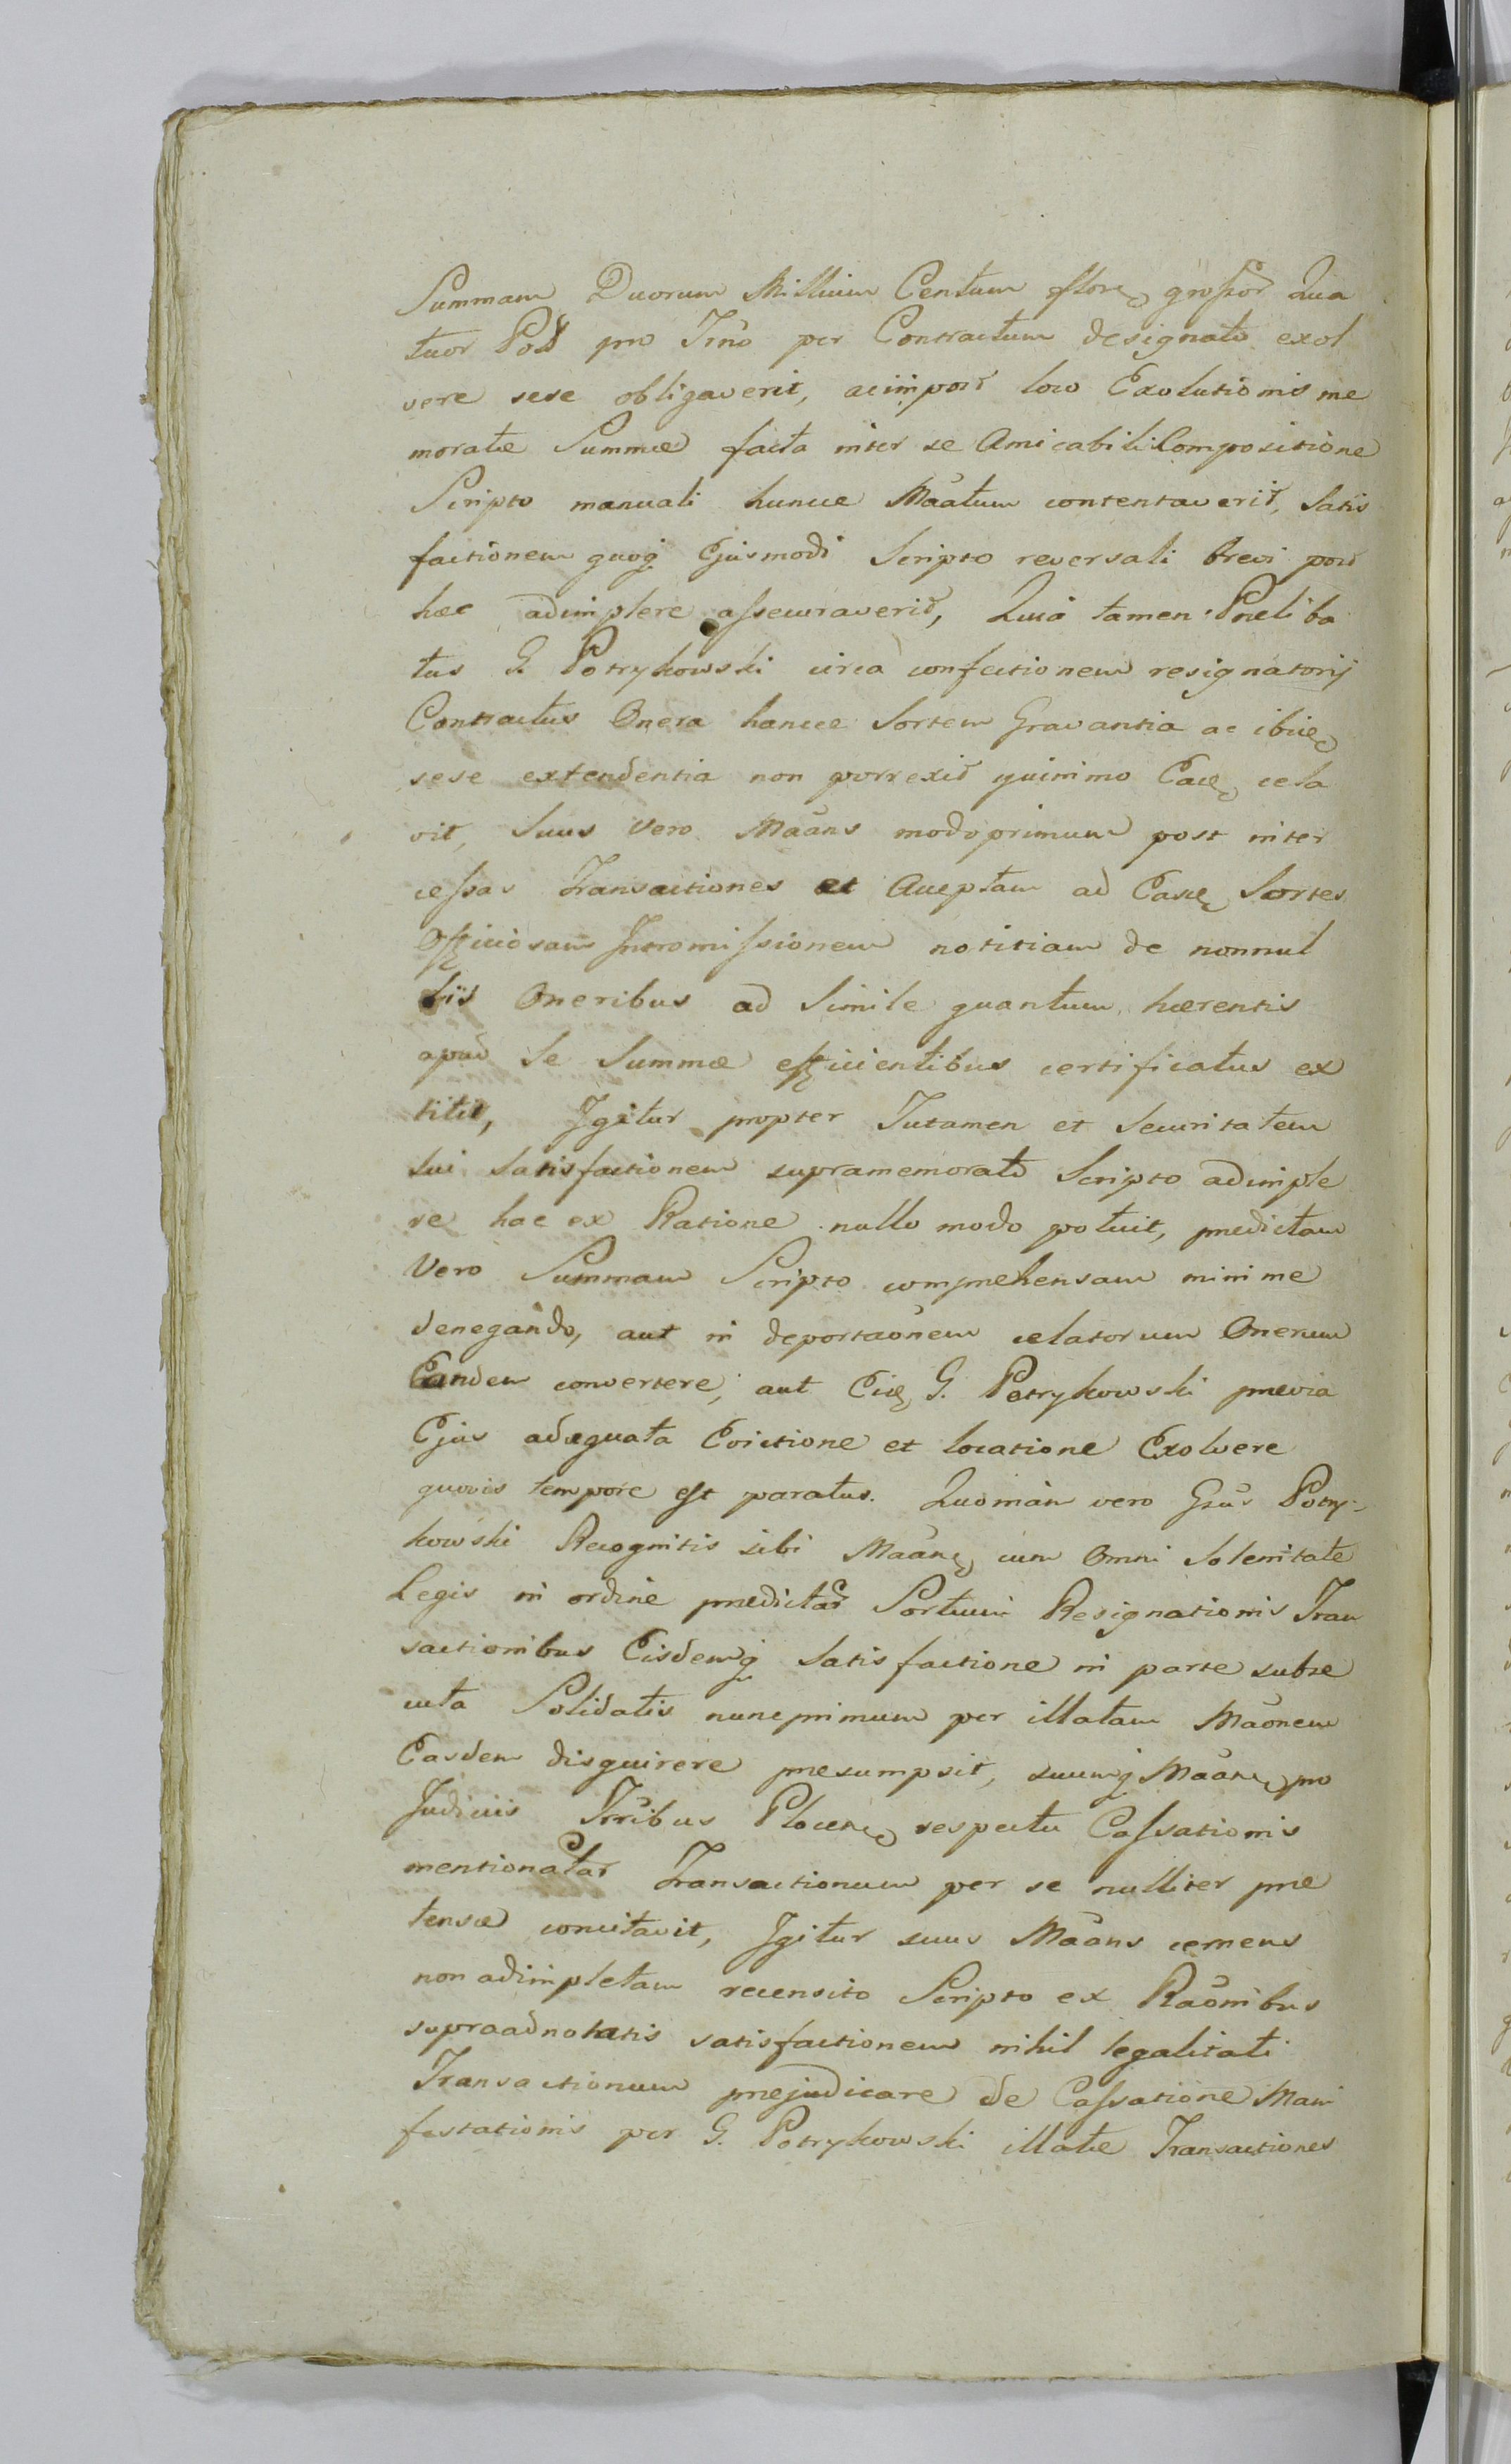 Summam Duorum Millium Centum floren grossor Qua
tuor Pol pro Trno per Contractum designato exol
vere sese obligaverit, ac impost loco Exolutionis me
moratæ Summæ facta inter se Amicabili Compositione
Scripto manuali huncce Mãatum contentaverit, Satis
factionem quoq Ejusmodi Scripto reversali brevi post
hæc adimplere assecuraverit, Quia tamen Præliba
tus G. Potrykowski circa confectionem resignatorij
Contractus Onera hancce Sortem Gravantia ac ibid
sese extendentia non porrexit quinimo Ead cela
vit, Suus vero Mãans modo primum post inter
cessas Transactiones et Acceptam ad Easd Sortes
Officiosam Intromissionem notitiam de nonnul
lis Oneribus ad Simile quantum hærentis
apud Se Summæ efficientibus certificatus ex
titit, Igitur propter Tutamen et Securitatem
sui Satisfactionem supramemorato Scripto adimple
re hac ex Ratione nullo modo potuit, prædictam
Vero Summam Scripto comprehensam minime
denegando, aut in deportãonem celatorum Onerum
Eandem convertere, aut Eid G. Potrykowski prævia
Ejus adæquata Evictione et locatione Exolvere
quovis tempore est paratus. Quoniam vero Gsus Potry-
kowski Recognitis sibi Mãane cum Omni Solenitate
Legis in ordine prædictar Sortium Resignationis Tran
sactionibus Eisdemq Satisfactione in parte subse
cuta Solidatis nunc primum per illatam Mãonem
Easdem disquirere præsumpsit, suumq Mãane pro
Judiciis Trribus Plocen respectu Cassationis
mentionatar Transactionum per se nulliter præ
tensæ concitavit, Igitur suus Mãans cernens
non adimpletam recensito Scripto ex Rãonibus
supraadnotatis satisfactionem nihil legalitati
Transactionum præjudicare de Cassatione Mani
festationis per G. Potrykowski illatæ Transactiones